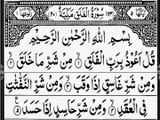 سُوْرَةُ الْفَلَقِ مَكِّيَّةٌ
بِسْمِ اللّٰهِ الرَّحْمٰنِ الرَّحِيْمِ
قُلْ اَعُوْذُ بِرَبِّ الْفَلَقِ ۙ مِنْ شَرِّ مَا خَلَقَ ۙ
وَمِنْ شَرِّ غَاسِقٍ اِذَا وَقَبَ ۙ وَمِنْ شَرِّ النَّفّٰثٰتِ
فِي الْعُقَدِ ۙ وَمِنْ شَرِّ حَاسِدٍ اِذَا حَسَدَ